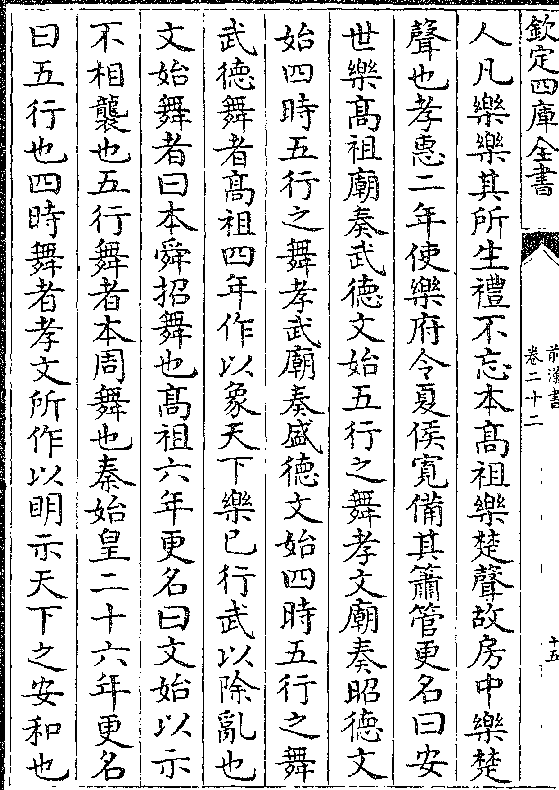 欽定四庫全書
前漢書
卷二十二
十五
人凡樂樂其所生禮不忘本髙祖樂楚聲故房中樂楚
聲也孝惠二年使樂府令夏侯寛備其簫管更名曰安
世樂髙祖廟奏武德文始五行之舞孝文廟奏昭德文
始四時五行之舞孝武廟奏盛德文始四時五行之舞
武德舞者髙祖四年作以象天下樂已行武以除亂也
文始舞者曰本舜招舞也髙祖六年更名曰文始以示
不相襲也五行舞者本周舞也秦始皇二十六年更名
曰五行也四時舞者孝文所作以明示天下之安和也